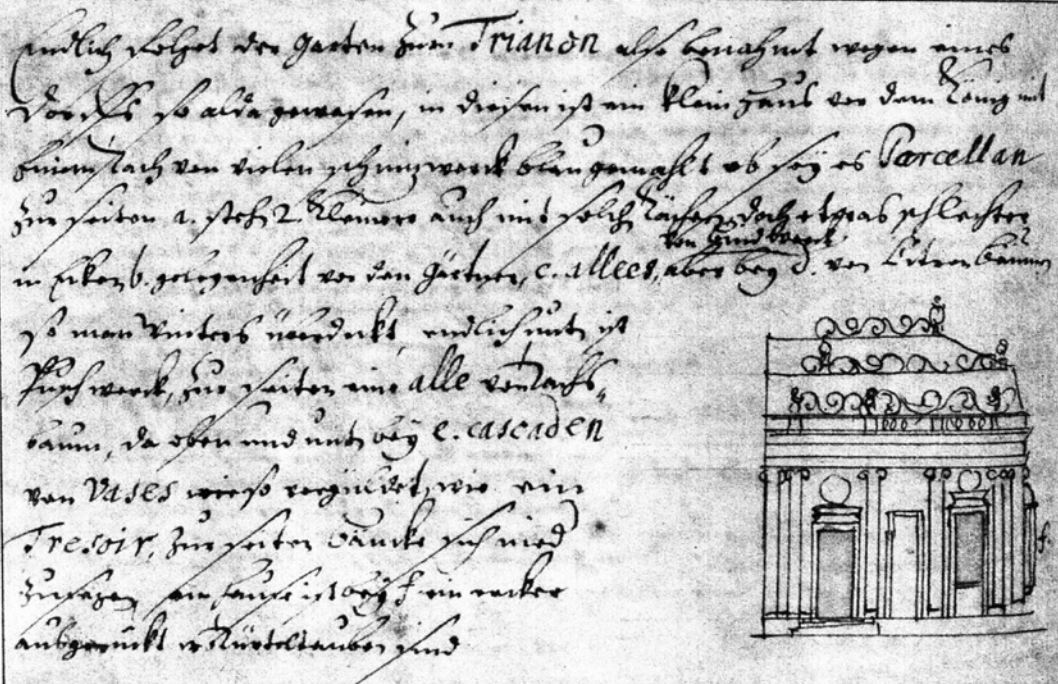 Endlich folget der Garten zum Trianon also benahmt wegen eines
Dorffs so alda gewesen, in diesen ist ein klein Haus vor dem König mit
einem Dach von vielen schnizwerck blau gemahlt ob sey es Porcellan
zur seiten a. stehn 2. kleinere auch mit solchen Dächern doch etwas schlechter
von Grund
in Ecken b. gelegenheit vor den Gärtner, c. allees, aber bey d. von Citronbäumen
so man Winters überdeckt, endlich unten ist
Puschwerck, zur seiten eine alle von Tachs-
baum, da oben und unten bey e. cascaden
von Vases weiss vergüldet, wie ein
Tresoir, zur seiten Bäncke sich nied
zusezen, am Hause ist bey f. ein
ausgerückt wo Türteltauben sind
f.